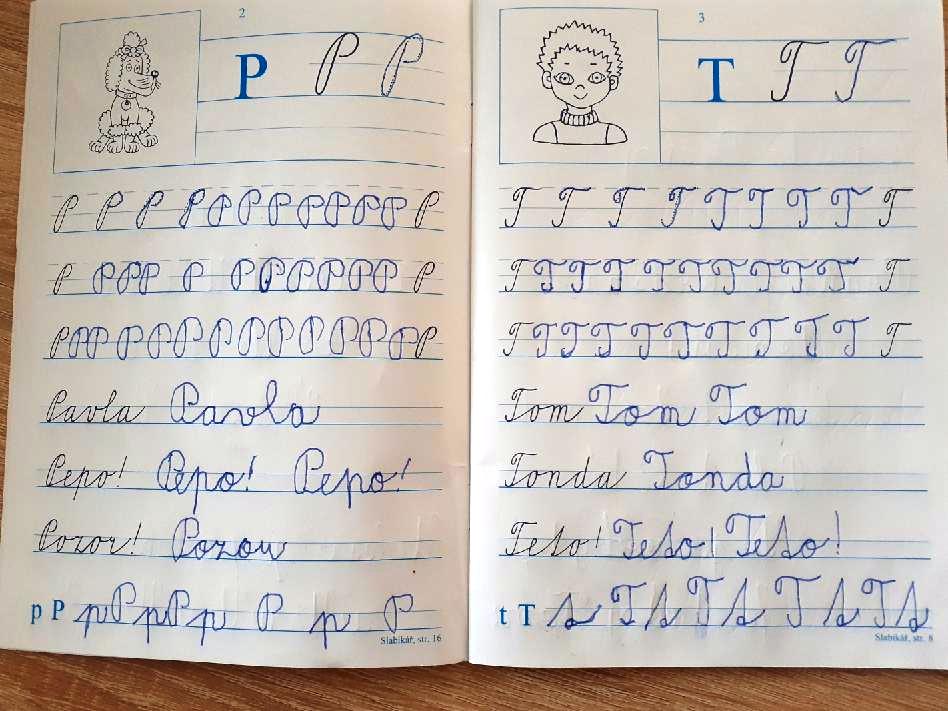 2
P P P
P P P P P P P P P P P P
P P P P P P P P P P P P
P P P P P P P P P P P P P P
Pavla Pavla
Pepo! Pepo! Pepo!
Pozor! Pozou
p P p P p P p P p P
Slabikář, str. 16
3
T T T
T T T T T T T T T
T T T T T T T T T T T
T T T T T T T T T T T
Tom Tom Tom
Tonda Tonda
Teto! Teto! Teto!
t T t T t T t T t T t
Slabikář, str. 8